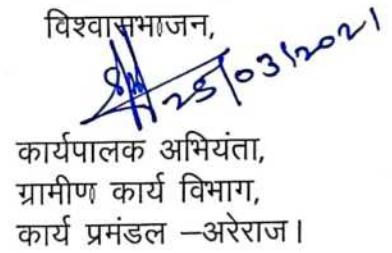 विश्वासभाजन,
25/03/2021
कार्यपालक अभियंता,
ग्रामीण कार्य विभाग,
कार्य प्रमंडल –अरेराज।